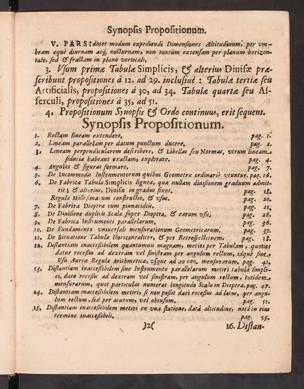 Synopsis Propositionum.
V. PARS: docet modum expediendi Dimensiones Altitudinum, per umbram aquè diurnam acq; nocturnam; non tantùm extensam per planum horizontale, sed & fractam in plano verticali.
3. Usum primæ Tabulæ Simplicis, & alterius Divisæ præscribunt propositiones à 12. ad 29. inclusivè: Tabulæ tertiæ seu Artificialis, propositiones à 30, ad 34. Tabulæ quartæ seu Asserculi, propositiones à 35, ad 51.
4. Propositionum Synopsis & Ordo continuus, erit sequens.
Synopsis Propositionum.
1. Rectam lineam extendere, pag. 1.
2. Lineam parallelam per datum punctum ducere. pag. 2.
3. Lineam perpendicularem describere. & Libellæ seu Normæ, utrum lineam
fiducia habeant exactam, explorare. pag. 4.
4. Angulos & figuras formare. pag. 7.
5. De Incommodis Instrumentorum quibus Geometra ordinariè utuntur. pag. 16.
6. De Fabrica Tabulæ Simplicis ligneæ, quæ nullam divisionem graduum admittit
& alterius, Divisæ in gradus suos, pag. 18.
Regulæ Messoriæ um constructio, & usus. pag. 20.
7. De Fabrica Dioptræ cum pinnacidiis, pag. 21.
8. De Divisione duplicis Scalæ super Dioptra, & earum usu; pag. 26.
9. De Fabrica Instrumenti parallelarum, pag. 36.
10. De Fundamento universali mensurationum Geometricarum, pag. 37.
11. De Situatione Tabulæ Horizontaliter, & per Retrospectionem. pag. 38.
12. Distantiam inaccessibilem quantumvis magnam, metiri per Tabulam, quotiescunque
datur recessus ad dextram vel sinistram per angulum rectum, idque sine
Usu Aureæ Regulæ Arithmeticæ, usque ad 20 000, mensurarum, pag. 41.
13. Distantiam inaccessibilem sine Instrumento parallelarum metiri tabula simplici,
dato recessu ad dextram vel sinistram, per angulum rectum, totidem
mensurarum, quot particulas numerat longitudo Scalæ in Dioptra. pag. 47.
14. Distantiam inaccessibilem metiri, si non possit dari recessus ad latus, per angulum
rectum, sed per acutum, vel obtusum, pag. 51.
15. Distantiam inaccessibilem metiri ex una statione, data altitudine, nota in ejus
termino inaccessibili. pag. 55.
)2(
16. Distan-